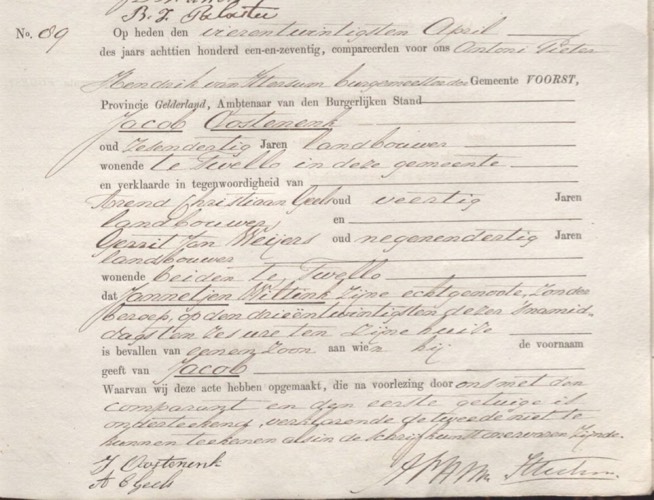 No. 89
Op heden den vierentwintigsten April
des jaars achttien honderd een-en-zeventig, compareerden voor ons Antoni Pieter
Hendrik van Itersum burgemeester der Gemeente VOORST,
Provincie Gelderland, Ambtenaar van den Burgerlijken Stand
Jacob Oostenenk
oud zesendertig Jaren landbouwer
wonende te Twello in deze gemeente
en verklaarde in tegenwoordigheid van
Arend Christiaan Geels oud veertig Jaren
landbouwer, en
Gerrit Jan Weijers oud negenendertig Jaren
landbouwer
wonende beiden te Twello
dat Jannetjen Wiltink zijne echtgenoote, zonder
beroep, op den drieëntwintigsten dezer snamid-
dags ten zes ure ten zijne huize
is bevallen van eenen zoon aan wien hij de voornaam
geeft van Jacob
Waarvan wij deze acte hebben opgemaakt, die na voorlezing door ons met den
comparant en den eerste getuige is
onderteekend, verklarende de tweede niet te
kunnen teekenen als in de schrijfkunst onervaren zijnde.
J Oostenenk
A C Geels